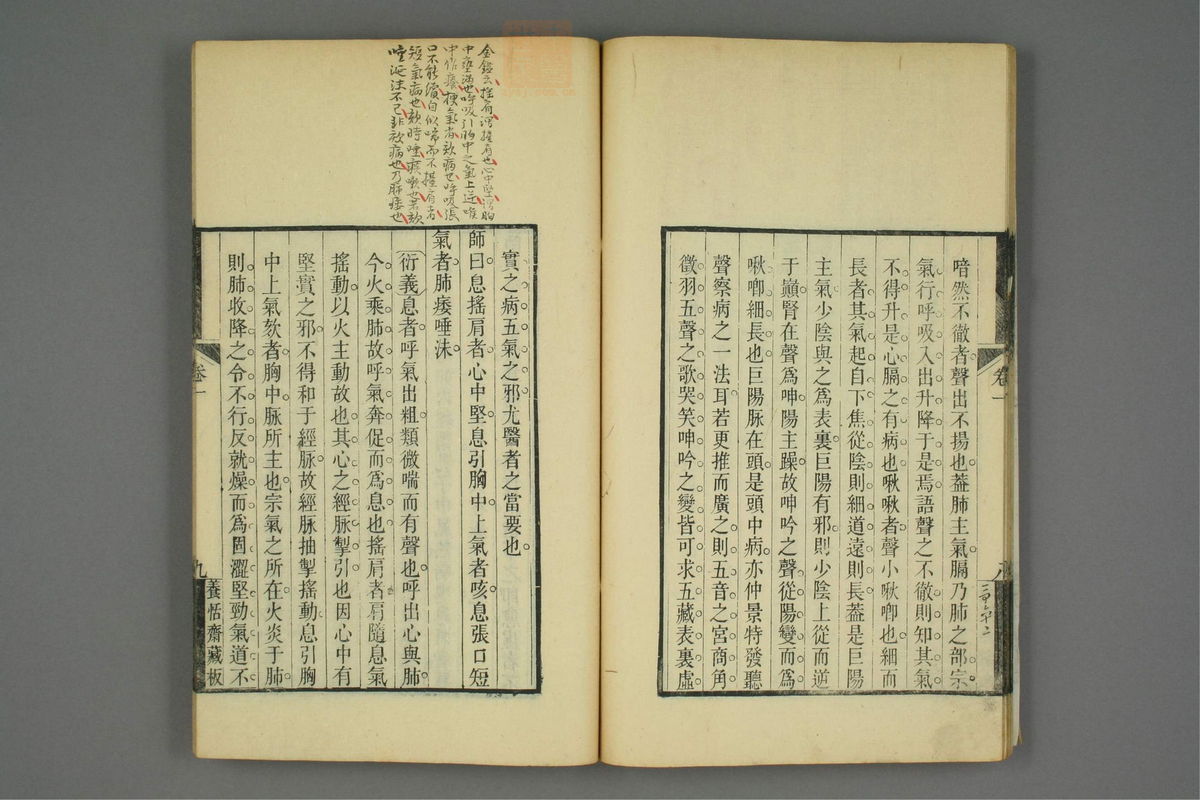 喑然不徹者聲出不揚也蓋肺主氣膈乃肺之部宗
氣行呼吸入出升降于是焉語聲之不徹則知其氣
不得升是心膈之有病也啾啾者聲小啾唧也細而
長者其氣起自下焦從陰則細道遠則長蓋是巨陽
主氣少陰與之爲表裏巨陽有邪則少陰上從而逆
于巔腎在聲爲呻陽主躁故呻吟之聲從陽變而爲
啾唧細長也巨陽脉在頭是頭中病亦仲景特發聽
聲察病之一法耳若更推而廣之則五音之宮商角
徵羽五聲之歌哭笑呻吟之變皆可求五藏表裏虛
卷一
八
實之病五氣之邪尤醫者之當要也
師曰息搖肩者心中堅息引胸中上氣者咳息張口短
氣者肺痿唾沫
衍義息者呼氣出粗類微喘而有聲也呼出心與肺
今火乘肺故呼氣奔促而爲息也搖肩者肩隨息氣
搖動以火主動故也其心之經脉掣引也因心中有
堅實之邪不得和于經脉故經脉抽掣搖動息引胸
中上氣欬者胸中脉所主也宗氣之所在火炎于肺
則肺收降之令不行反就燥而爲固澀堅勁氣道不
卷一
九
養恬齋藏板
金鑑云搖肩謂擡肩也心中堅謂胸
中堅滿也呼吸引胸中之氣上逆喉
中作癢梗氣者欬病也呼吸張
口不能續自似喘而不擡肩者
短氣病也欬時唾痰嗽也若欬
唾涎沫不已非欬病也乃肺痿也